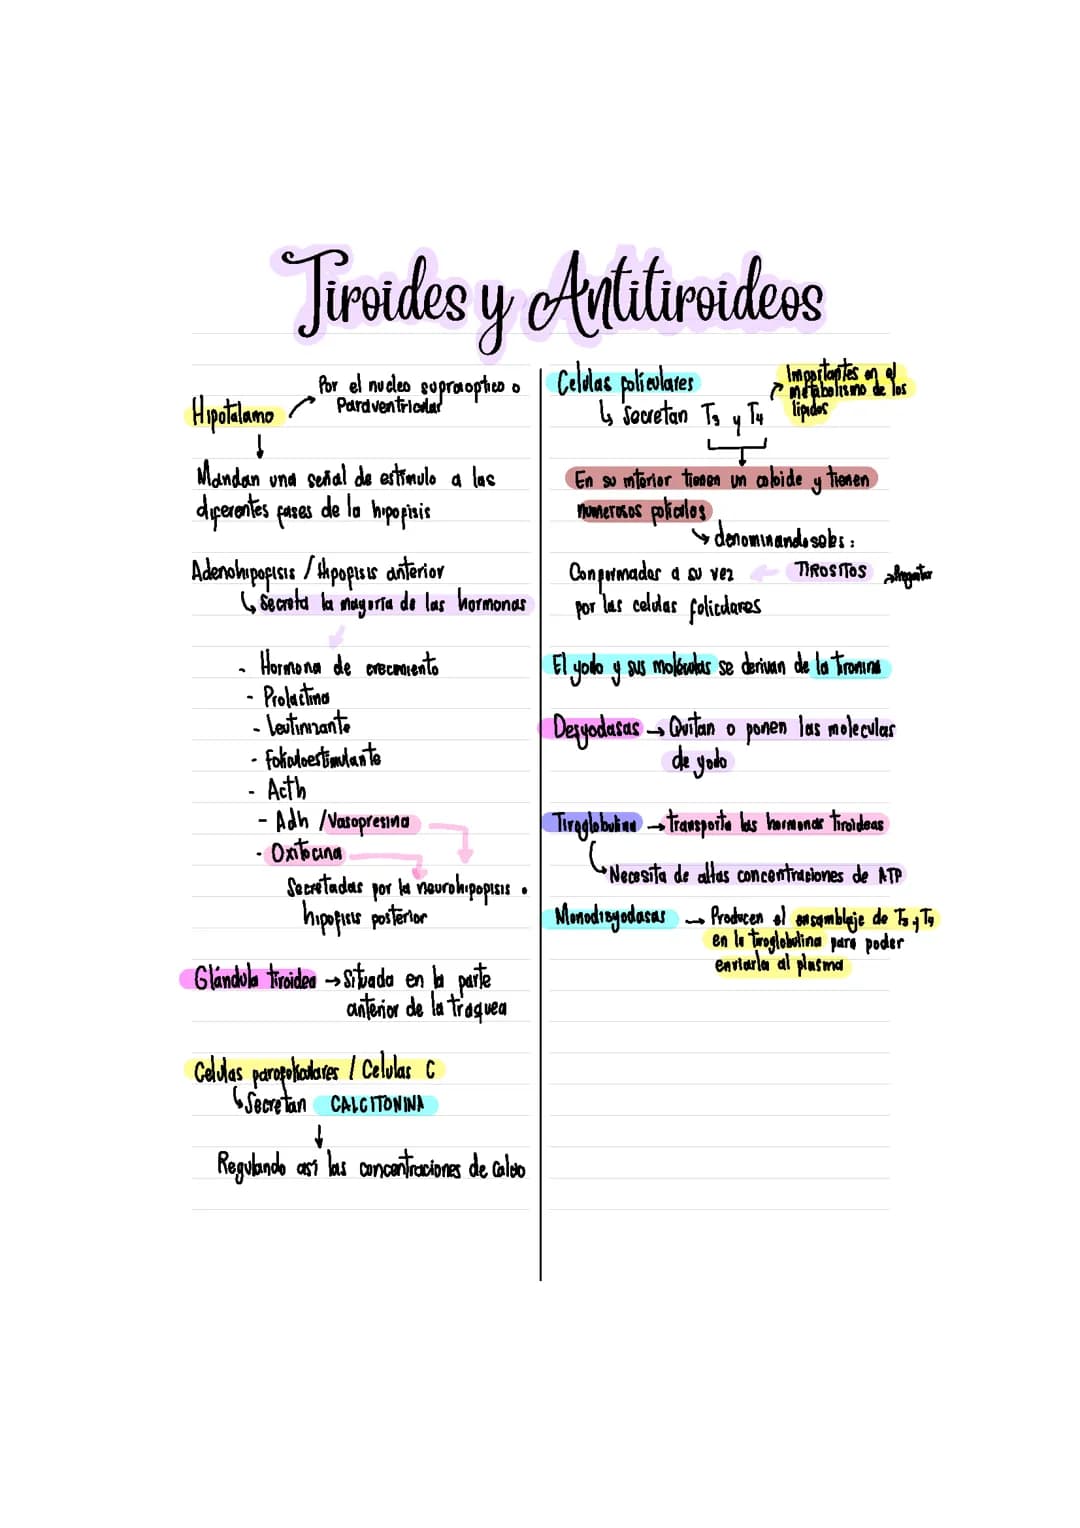 Tiroides y Antitiroideos
Por el nucleo supraoptico o
Paraventricular
Hipotalamo
Mandan una señal de estimulo a las
diferentes fases de la hipofisis
Adenohipofisis / Hipofisis anterior
Secreta la mayoria de las hormonas
- Hormona de crecimiento
- Prolactina
- Leutinizante
- Foliculoestimulante
- Acth
- Adh / Vasopresina
- Oxitocina
Secretadas por la neurohipofisis o
hipofisis posterior
Glándula tiroidea → Situada en la parte
anterior de la traquea
Celulas parafoliculares / Celulas C
Secretan CALCITONINA
Regulando asi las concentraciones de Calcio
Celulas foliculares
Secretan T3 y T4
Importantes en el
metabolismo de los
lipidos
En su interior tienen un coloide y tienen
numerosos foliculos
denominandosels:
Conformados a su vez ← TIROSITOS
por las celulas foliculares
El yodo y sus moléculas se derivan de la tironina
Desyodasas → Quitan o ponen las moleculas
de yodo
Tiroglobulina → transporta las hormonas tiroideas
Necesita de altas concentraciones de ATP
Monodisyodasas → Producen el ensamblaje de T3 y T4
en la tiroglobulina para poder
enviarla al plasma